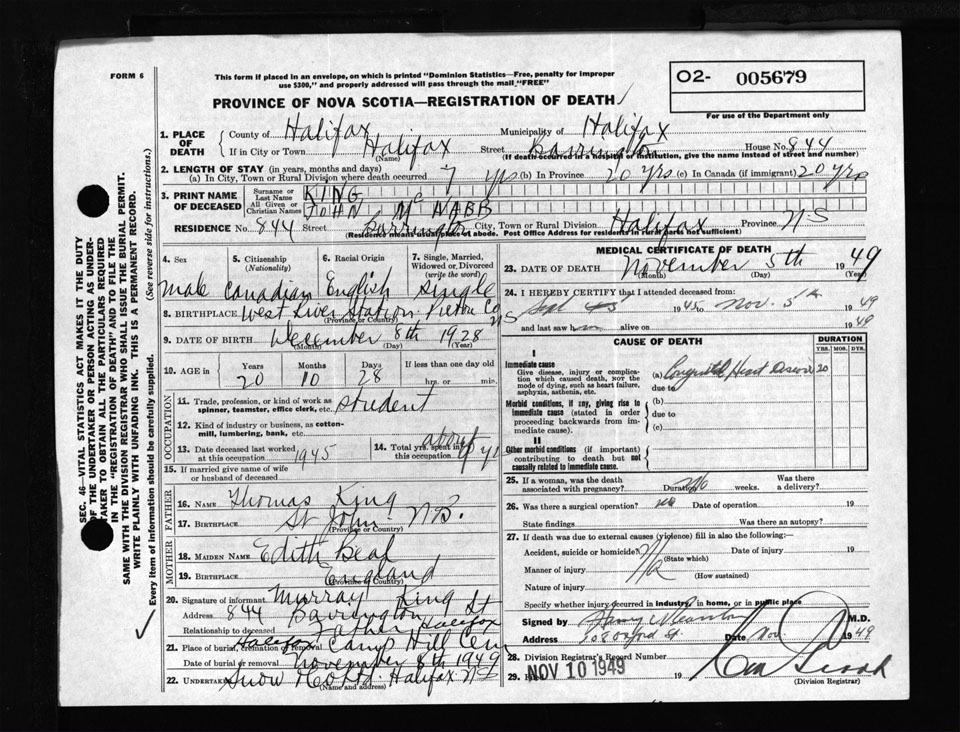 FORM 6
This form if placed in an envelope, on which is printed "Dominion Statistics—Free, penalty for improper
use $300," and properly addressed will pass through the mail "FREE"
O2- 005679
PROVINCE OF NOVA SCOTIA—REGISTRATION OF DEATH
For use of the Department only
1. PLACE OF DEATH
County of Halifax Municipality of Halifax
If in City or Town Halifax Street Barrington House No. 844
(Name) (If death occurred in a hospital or institution, give the name instead of street and number)
2. LENGTH OF STAY (in years, months and days)
(a) In City, Town or Rural Division where death occurred 7 yrs (b) In Province 20 yrs (c) In Canada (if immigrant) 20 yrs
3. PRINT NAME OF DECEASED
Surname or Last Name KING
All Given or Christian Names JOHN McNABB
RESIDENCE No. 844 Street Barrington City, Town or Rural Division Halifax Province N-S
(Residence means usual place of abode. Post Office Address for residence in rural parts not sufficient)
4. Sex
5. Citizenship (Nationality)
6. Racial Origin
7. Single, Married, Widowed or Divorced (write the word)
Male Canadian English Single
8. BIRTHPLACE West River Station Pictou Co NS
(Province or Country)
9. DATE OF BIRTH December 8th 1928
(Month) (Day) (Year)
10. AGE in
Years Months Days If less than one day old
20 10 28 hrs. or min.
OCCUPATION
11. Trade, profession or kind of work as
spinner, teamster, office clerk, etc. Student
12. Kind of industry or business, as cotton-
mill, lumbering, bank, etc.
13. Date deceased last worked
at this occupation 1945
14. Total yrs. spent in
this occupation about
15. If married give name of wife
or husband of deceased
FATHER
16. NAME Thomas King
17. BIRTHPLACE St John N.B.
(Province or Country)
MOTHER
18. MAIDEN NAME Edith
19. BIRTHPLACE England
(Province or Country)
20. Signature of informant Murray King
Address 844 Barrington St
Relationship to deceased Father Halifax
21. Place of burial, cremation or removal Halifax Camp Hill Cem
Date of burial or removal November 8th 1949
22. Undertaker Snow Halifax NS
(Name and address)
MEDICAL CERTIFICATE OF DEATH
23. DATE OF DEATH November 5th 1949
(Month) (Day) (Year)
24. I HEREBY CERTIFY that I attended deceased from:
Sept 1945 to Nov. 5th 1949
and last saw him alive on 1949
CAUSE OF DEATH
DURATION
YRS. MOS. DYS.
I
Immediate cause
Give disease, injury or compli-
cation which caused death, NOT the
mode of dying, such as heart failure,
asphyxia, asthenia, etc.
(a) Congenital Heart Disease 20
due to
Morbid conditions, if any, giving rise to
immediate cause (stated in order
proceeding backwards from im-
mediate cause).
(b)
due to
(c)
II
Other morbid conditions (if important)
contributing to death but not
causally related to immediate cause.
25. If a woman, was the death
associated with pregnancy? No Duration weeks. Was there
a delivery?
26. Was there a surgical operation? no Date of operation 19
State findings Was there an autopsy?
27. If death was due to external causes (violence) fill in also the following:
Accident, suicide or homicide? Date of injury 19
(State which)
Manner of injury
(How sustained)
Nature of injury
Specify whether injury occurred in industry, in home, or in public place
Signed by Harry M.D.
Address Oxford St. Date Nov. 1949
28. Division Registrar's Record Number
29. NOV 10 1949 19
(Division Registrar)
SEC. 46—VITAL STATISTICS ACT MAKES IT THE DUTY
OF THE UNDERTAKER OR PERSON ACTING AS UNDER-
TAKER TO OBTAIN ALL THE PARTICULARS REQUIRED
IN THE "REGISTRATION OF DEATH" AND TO FILE THE
SAME WITH THE DIVISION REGISTRAR WHO SHALL ISSUE THE BURIAL PERMIT.
WRITE PLAINLY WITH UNFADING INK. THIS IS A PERMANENT RECORD.
Every item of information should be carefully supplied. (See reverse side for instructions.)